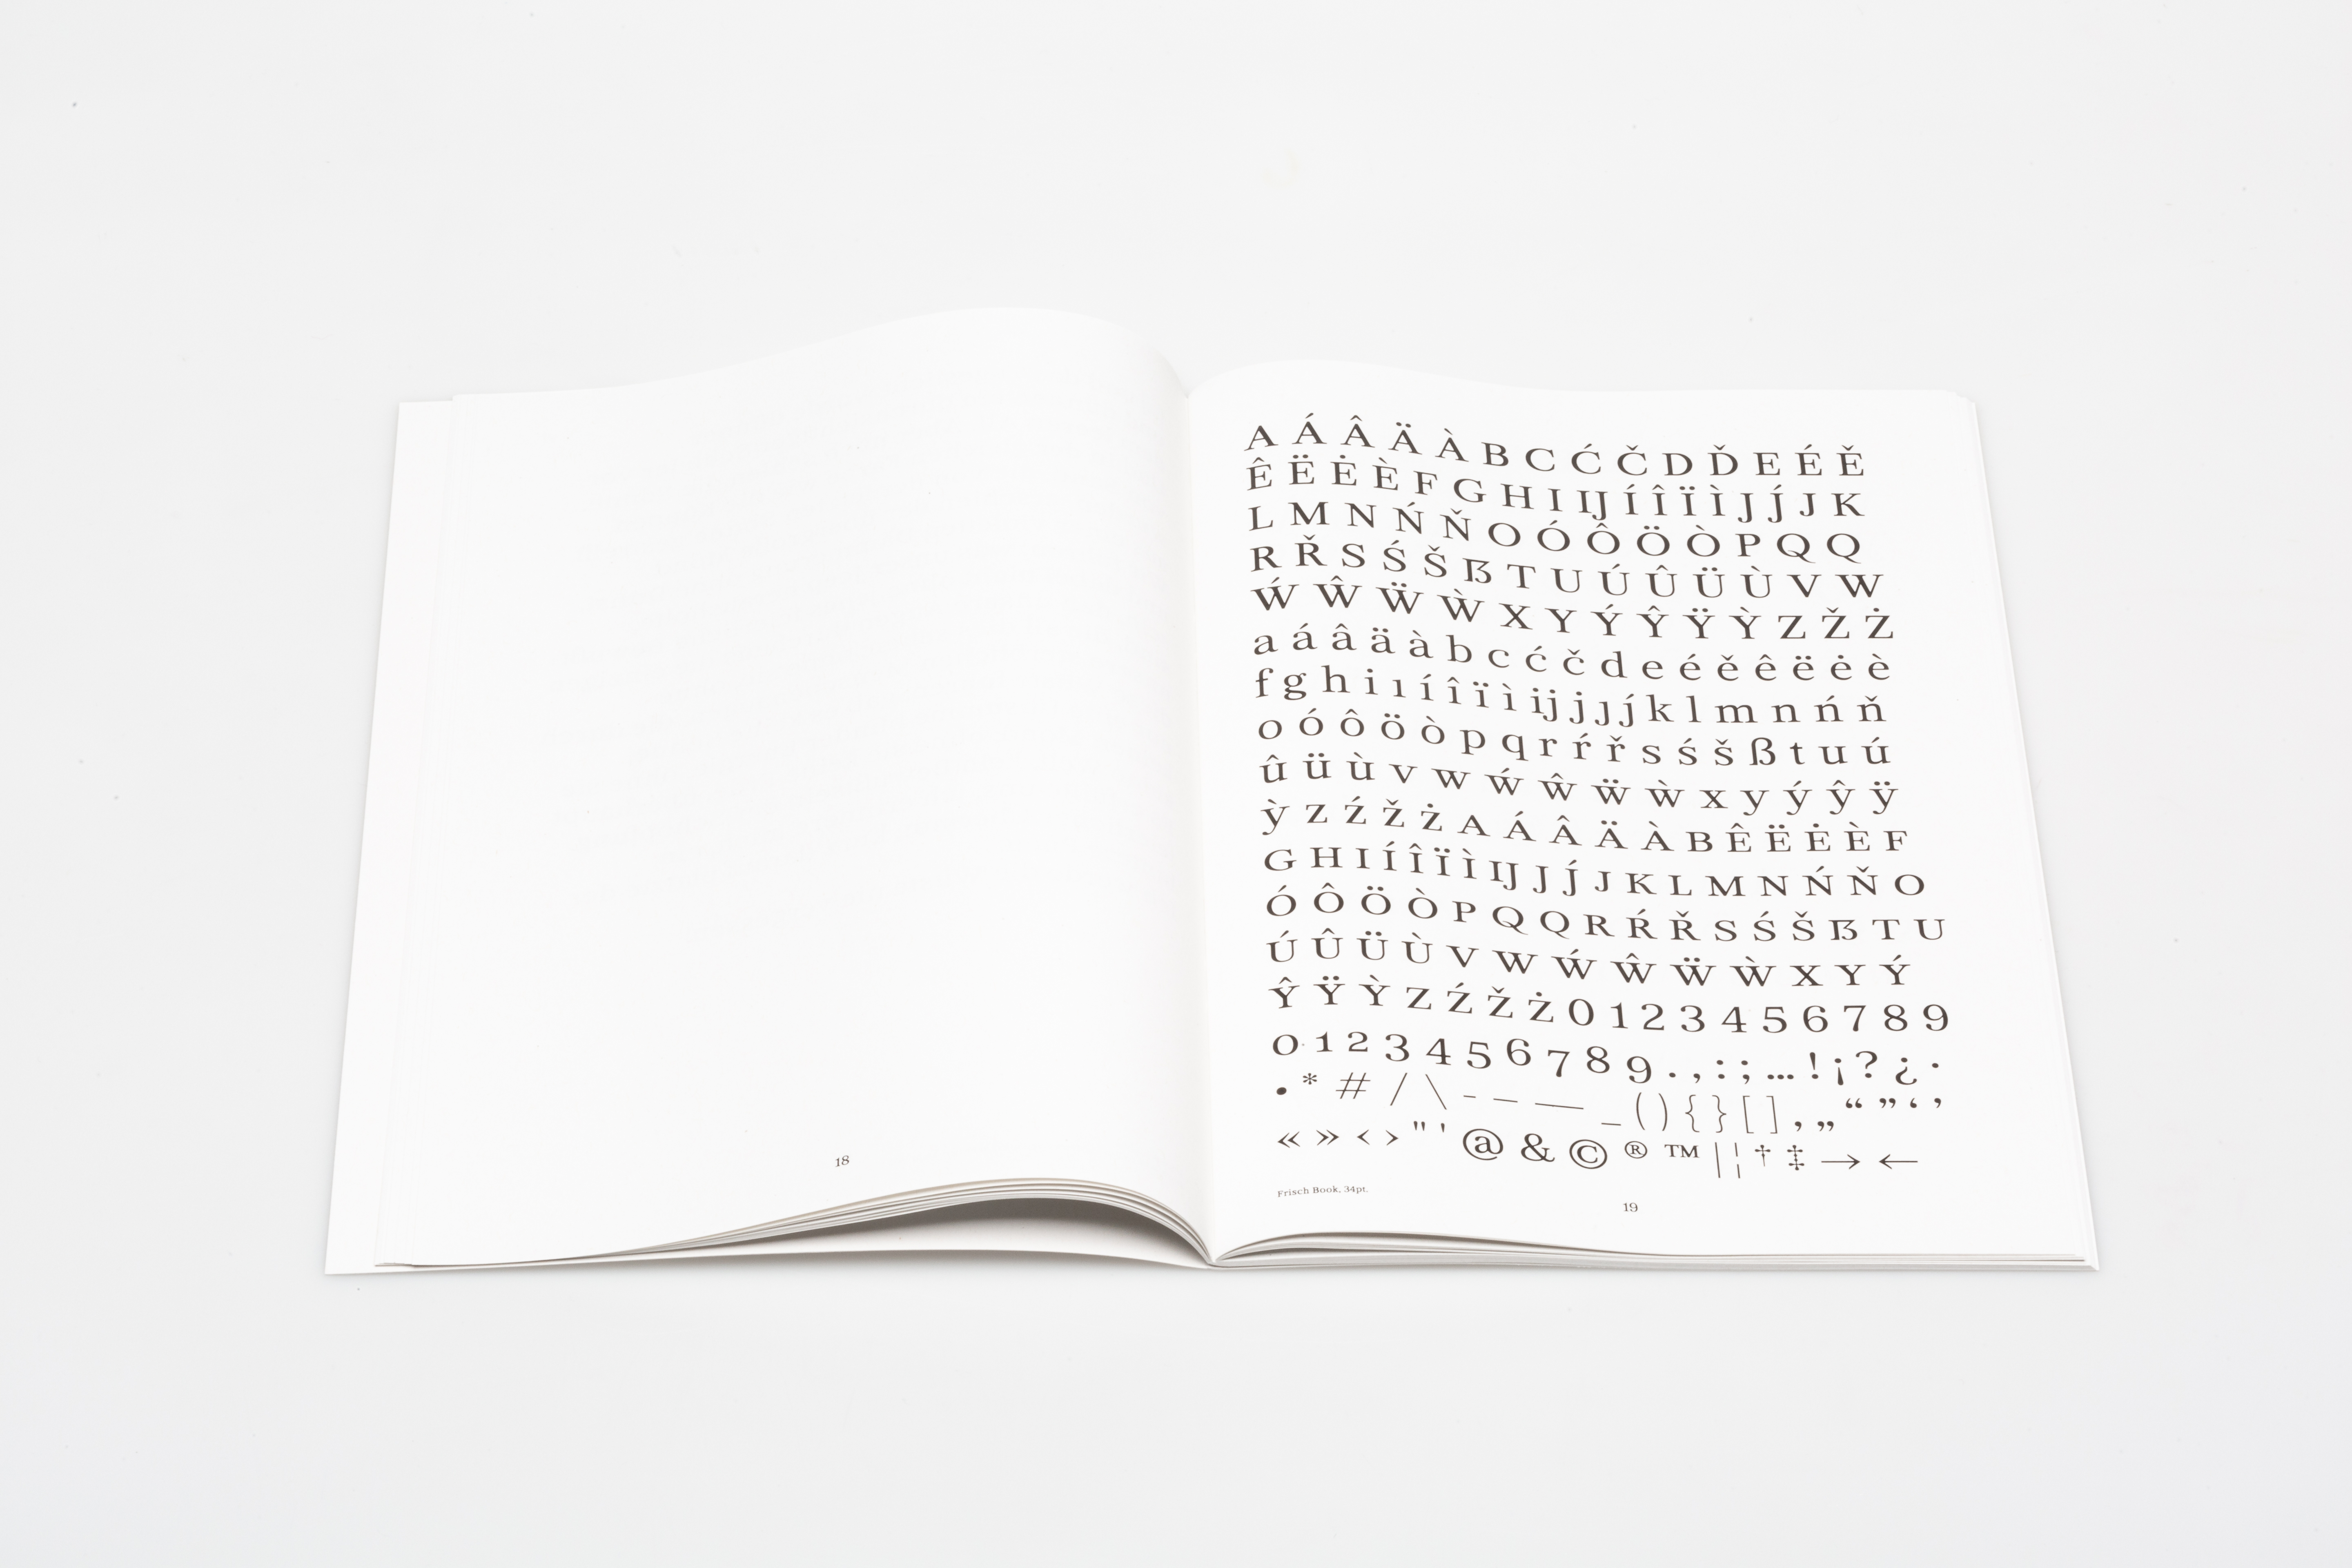 18
A Á Â Ä À B C Ć Č D Ď E É Ě
Ê Ë Ė È F G H I IJ Í Î Ï Ì J J́ J K
L M N Ń Ň O Ó Ô Ö Ò P Q Q
R Ř S Ś Š ẞ T U Ú Û Ü Ù V W
Ẃ Ŵ Ẅ Ẁ X Y Ý Ŷ Ÿ Ỳ Z Ž Ż
a á â ä à b c ć č d e é ě ê ë ė è
f g h i ı í î ï ì ij j ȷ j́ k l m n ń ň
o ó ô ö ò p q r ŕ ř s ś š ß t u ú
û ü ù v w ẃ ŵ ẅ ẁ x y ý ŷ ÿ
ỳ z ź ž ż A Á Â Ä À B Ê Ë Ė È F
G H I Í Î Ï Ì IJ J J́ J K L M N Ń Ň O
Ó Ô Ö Ò P Q Q R Ŕ Ř S Ś Š ẞ T U
Ú Û Ü Ù V W Ẃ Ŵ Ẅ Ẁ X Y Ý
Ŷ Ÿ Ỳ Z Ź Ž Ż 0 1 2 3 4 5 6 7 8 9
0 1 2 3 4 5 6 7 8 9 . , : ; … ! ¡ ? ¿ ·
• * # / \ - – — _ ( ) { } [ ] ‚ „ “ ” ‘ ’
« » ‹ › " ' @ & © ® ™ | ¦ † ‡ → ←
Frisch Book, 34pt.
19